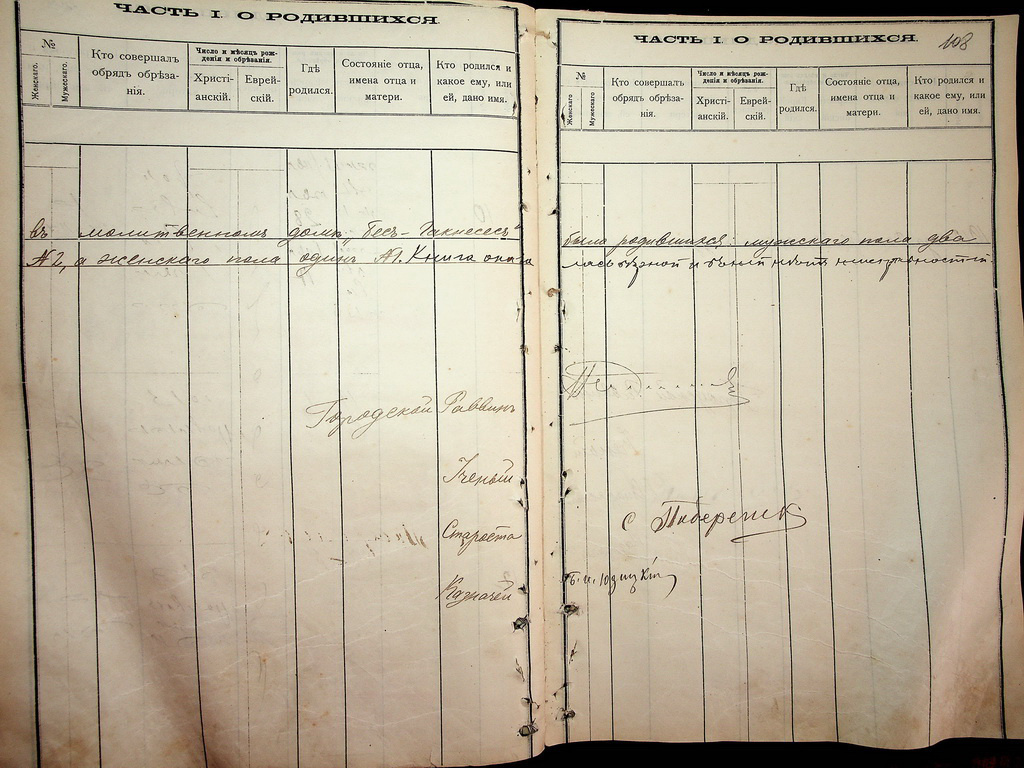 ЧАСТЬ I. О РОДИВШИХСЯ.
№
Женскаго.
Мужескаго.
Кто совершалъ обрядъ обрѣзанія.
Число и мѣсяцъ рожденія и обрѣзанія.
Христіанскій.
Еврейскій.
Гдѣ родился.
Состояніе отца, имена отца и матери.
Кто родился и какое ему, или ей, дано имя.
въ молитвенномъ домѣ „Бесъ-Гакнесесъ"
№2, а женскаго пола одинъ №1. Книга оказа
Городской Раввинъ
Ученый
Староста
Казначей
ЧАСТЬ I. О РОДИВШИХСЯ.
108
№
Женскаго
Мужескаго
Кто совершалъ обрядъ обрѣзанія.
Число и мѣсяцъ рожденія и обрѣзанія.
Христіанскій.
Еврейскій.
Гдѣ родился.
Состояніе отца, имена отца и матери.
Кто родился и какое ему, или ей, дано имя.
было родившихся: мужскаго пола два
лась вѣрной и
с